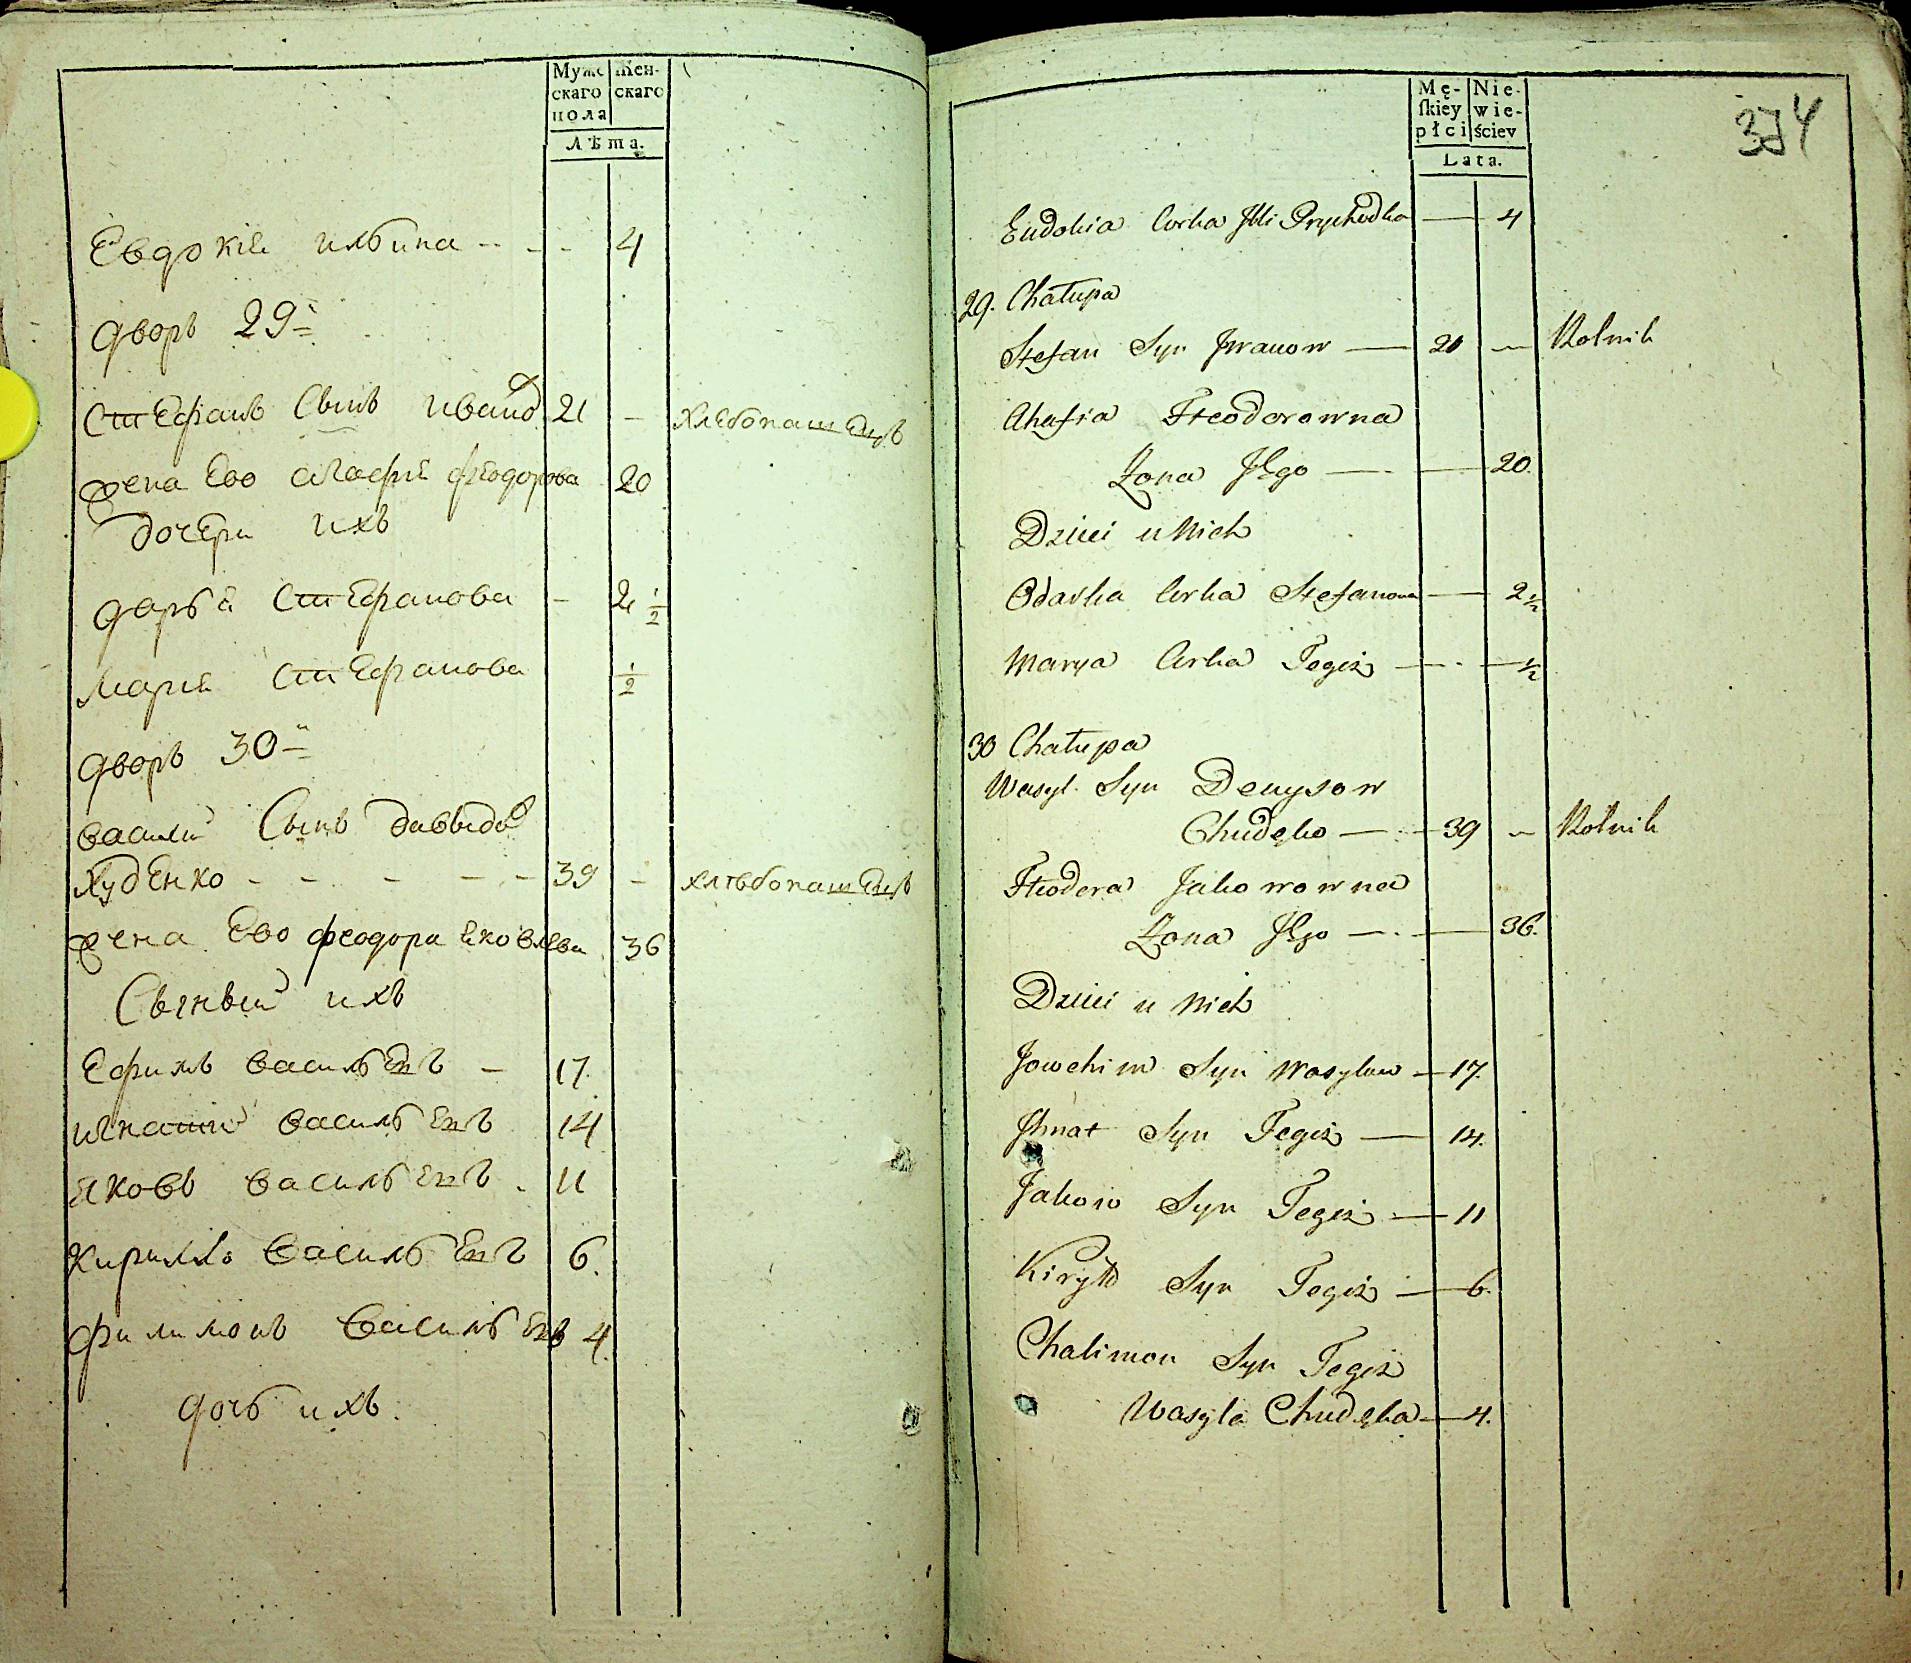 Мужс
скаго
пола
Жен-
скаго
Лѣта.
Евдокія ильина - - - 4
дворъ 29й
Стефанъ Сынъ Иванов 21 - Хлебопашецъ
жена Ево Агафия феодорова 20
дочери ихъ
дарья Стефанова - 2 1/2
Мария Стефанова 1/2
дворъ 30й
василий Сынъ давыдов
Худенко - - - - - 39 - хлѣбопашецъ
жена Ево феодора яковлева 36
Сыновьи ихъ
Ефимъ васильевъ - 17.
игнатий васильевъ 14
яковъ васильевъ - 11
Кирилло васильевъ 6.
филимонъ васильевъ 4.
дочь ихъ.
Mę-
skiey
płci
Nie-
wie-
ściey
Lata.
374
Eudokia Corka Jlli Prychodka — 4
29. Chałupa
Stefan Syn Jwanow — 20 — Rolnik
Ahafia Fteodorowna
Zona Jego — — 20.
Dzieci u Nich
Odarka Corka Stefanowa — 2 1/2
Marya Corka Tegoż — - — 1/2
30 Chałupa
Wasyl Syn Denysow
Chudęko — - — 39 — Rolnik
Fteodora Jakowowna
Zona Jego — - — 36.
Dzieci u Nich
Jowchim Syn Wasylow — 17.
Jhnat Syn Tegoż — 14.
Jakow Syn Tegoż — 11
Kiryłło Syn Tegoż — 6.
Chalimon Syn Tegoż
Wasyla Chudęka — 4.